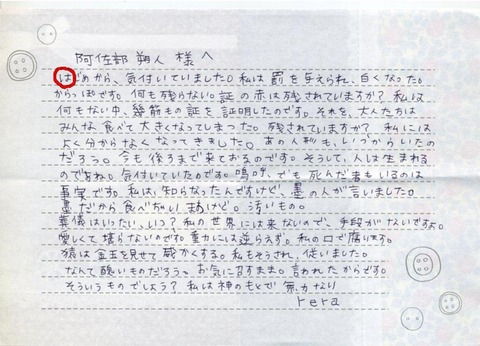 阿佐部 朔人 様へ
はじめから、気付いていました。私は罰を与えられ、白くなった。
からっぽです。何も残らない。証の赤は残されていますか？私は
何もない中、幾筋もの証を証明したのです。それを、大人たちは
みんな食べて大きくなってしまった。残されていますか？私には
よく分からなくなってきました。あの人形も、いつからいたの
だろう。今も後ろまで来ておるのです。そうして、人は生まれる
のですね。気付いていたのです。嗚呼、でも死んだ者もいるのは
事実です。私は、知らなったんですけど、墨の人が言いました。
墨だから食べがいいますけど。汚いもの。
葬儀はいったい、いつ？私の世界には来ないので、手段がないですよ。
愛しくて堪らないのです。重力には逆らえず。私の口で腐ります。
猿は金玉を見せて威かくする。私もそうされ、従いました。
なんて醜いものだろう。お気に召すまま。言われたからです。
そういうものでしょう？私は神のもとで無力なり
rera